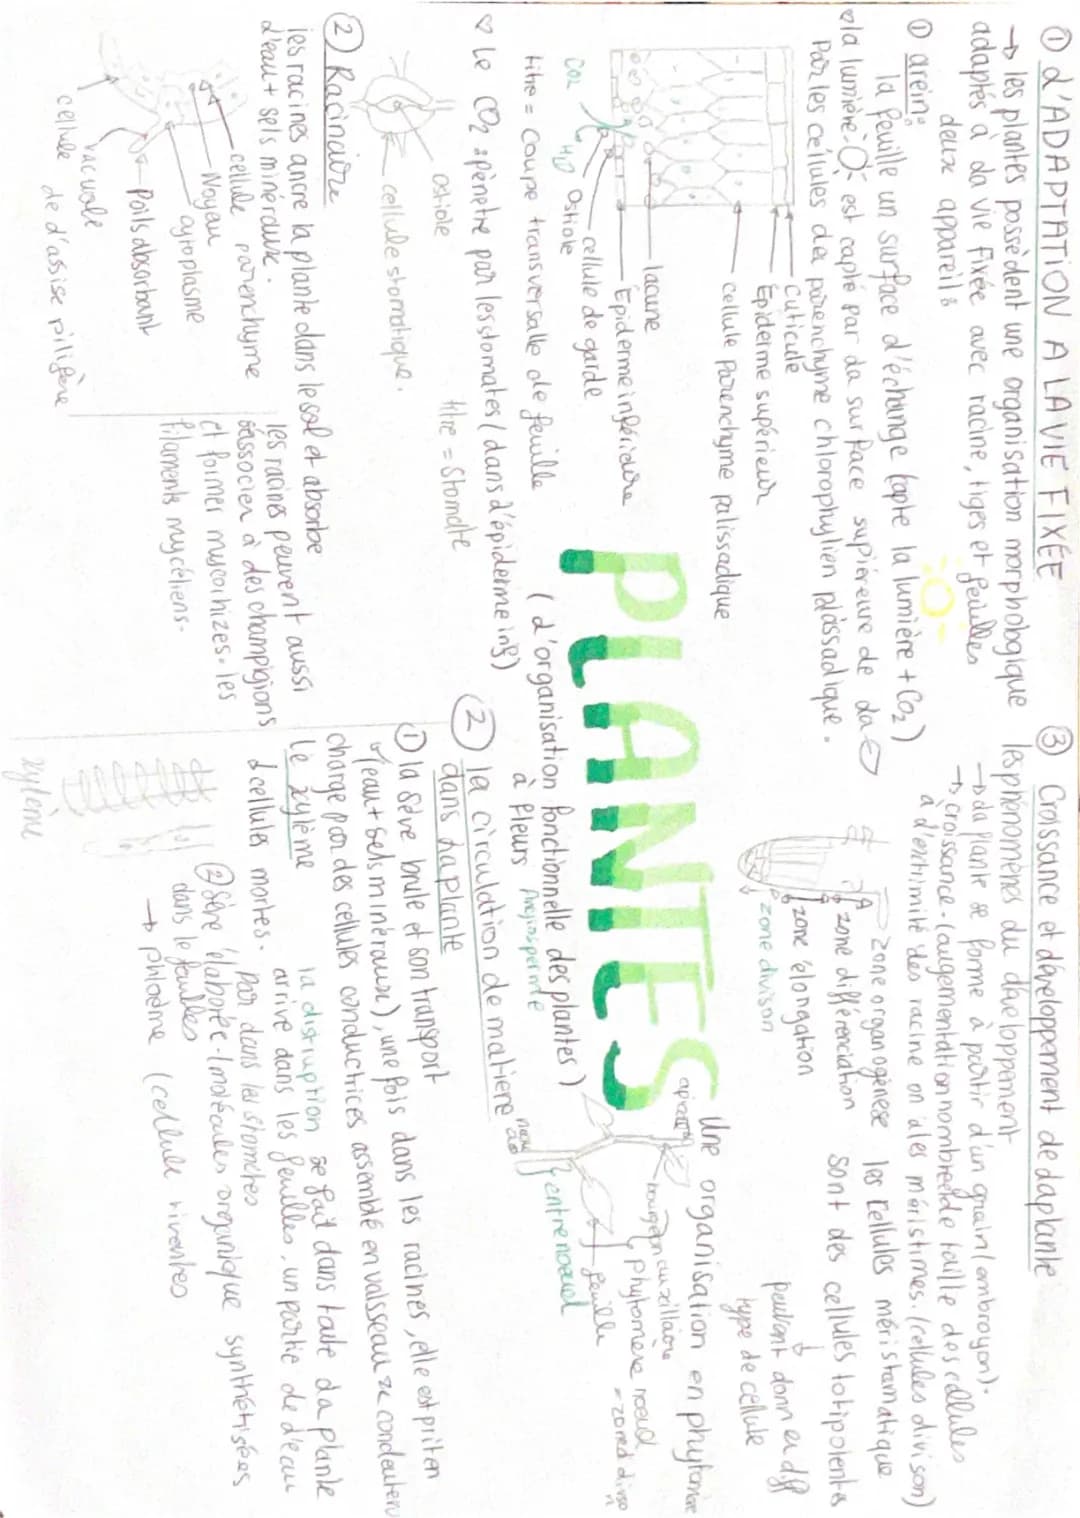 ① L'ADAPTATION A LA VIE FIXÉE
→ les plantes possèdent une organisation morphologique
adaptés à la vie fixée avec racine, tiges et feuilles
deux appareils
① arein:
la feuille un surface d'échange (apte la lumière + Co2)
♥ la lumière - est capté par la surface supérieure de la
Par les cellules de parenchyme chlorophylien plassadique.
Cuticule
Épiderme supérieur
cellule parenchyme palissadique
lacune
Épiderme inférieure
cellule de garde
Ostiole
CO2
H2O
titre = Coupe transversalle de feuille
♥ Le CO2 : pénètre par les stomates (dans l'épiderme inf)
ostiole
cellule stomatique.
titre = Stomate
② Racinaire
les racines ancre la plante dans le sol et absorbe
d'eau + sels minéraux.
cellule parenchyme
Noyau
cytoplasme
Poils absorbant
vacuole
cellule de l'assise pilifère
les racines peuvent aussi
s'associer à des champignons
et former mycorhizes. les
filaments mycéliens.
PLANTES
(L'organisation fonctionnelle des plantes)
à fleurs Angiosperme
② la circulation de matière
dans la plante
① la sève brute et son transport
(eau + sels minéraux), une fois dans les racines, elle est prit en
charge par des cellules conductrices assemblé en vaisseaux
le xylème
↓ cellules mortes.
la distruption se fait dans toute la plante
arrive dans les feuilles, un partie de l'eau
par dans les stomates
② Sève élaborée - (molécules organique synthétisées
dans le feuilles
→ phloème (cellule vivantes
xylème
③ Croissance et développement de la plante
les phénomènes du développment
→ la plante se forme à partir d'un grain (embroyon).
→ croissance - (augementation nombre et de taille des cellules
à l'entrimité des racine on a les méristimes. (cellules divison)
zone organogenèse
zone différenciation
zone élongation
zone divison
les cellules méristamatique
sont des cellules totipotentes
↓
peuvent donner diff
type de cellule
Une organisation en phytomère
bourgeon auxillaire
phytomère noeud
feuille
noeud
entrenoeud